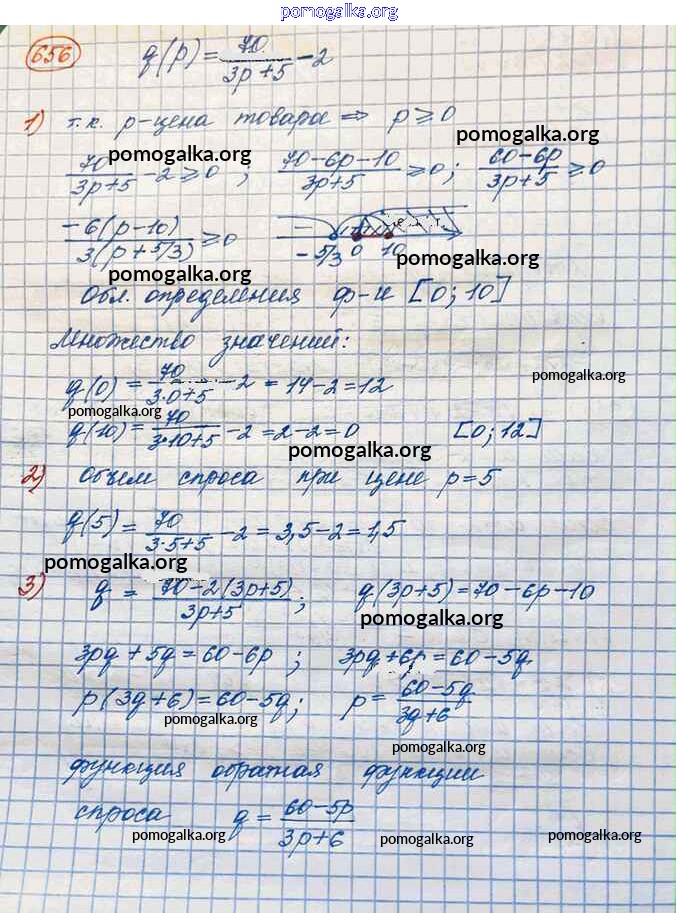 pomogalka.org
656 q(p) = 70/(3p+5) - 2
1) т.к. p-цена товара ⇒ p ≥ 0
pomogalka.org
pomogalka.org
70/(3p+5) - 2 ≥ 0 ; (70-6p-10)/(3p+5) ≥ 0; (60-6p)/(3p+5) ≥ 0
-6(p-10)/(3(p+5/3)) ≥ 0 - + -5/3 0 10
pomogalka.org
pomogalka.org
Обл. определения ф-и [0; 10]
Множество значений:
q(0) = 70/(3·0+5) - 2 = 14-2 = 12
pomogalka.org
pomogalka.org
q(10) = 70/(3·10+5) - 2 = 2-2 = 0 [0; 12]
pomogalka.org
2) Объем спроса при цене p=5
q(5) = 70/(3·5+5) - 2 = 3,5-2 = 1,5
pomogalka.org
3) q = (70-2(3p+5))/(3p+5); q(3p+5) = 70-6p-10
pomogalka.org
3pq + 5q = 60-6p ; 3pq+6p = 60-5q
p(3q+6) = 60-5q; p = (60-5q)/(3q+6)
pomogalka.org
pomogalka.org
функция обратная функции
спроса q = (60-5p)/(3p+6)
pomogalka.org
pomogalka.org
pomogalka.org